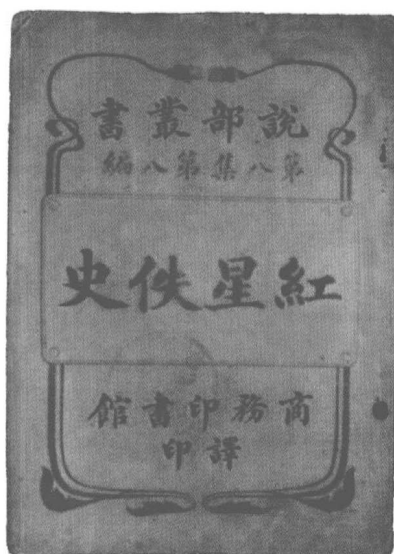 說部叢書
第八集第八編
紅星佚史
商務印書館
譯印